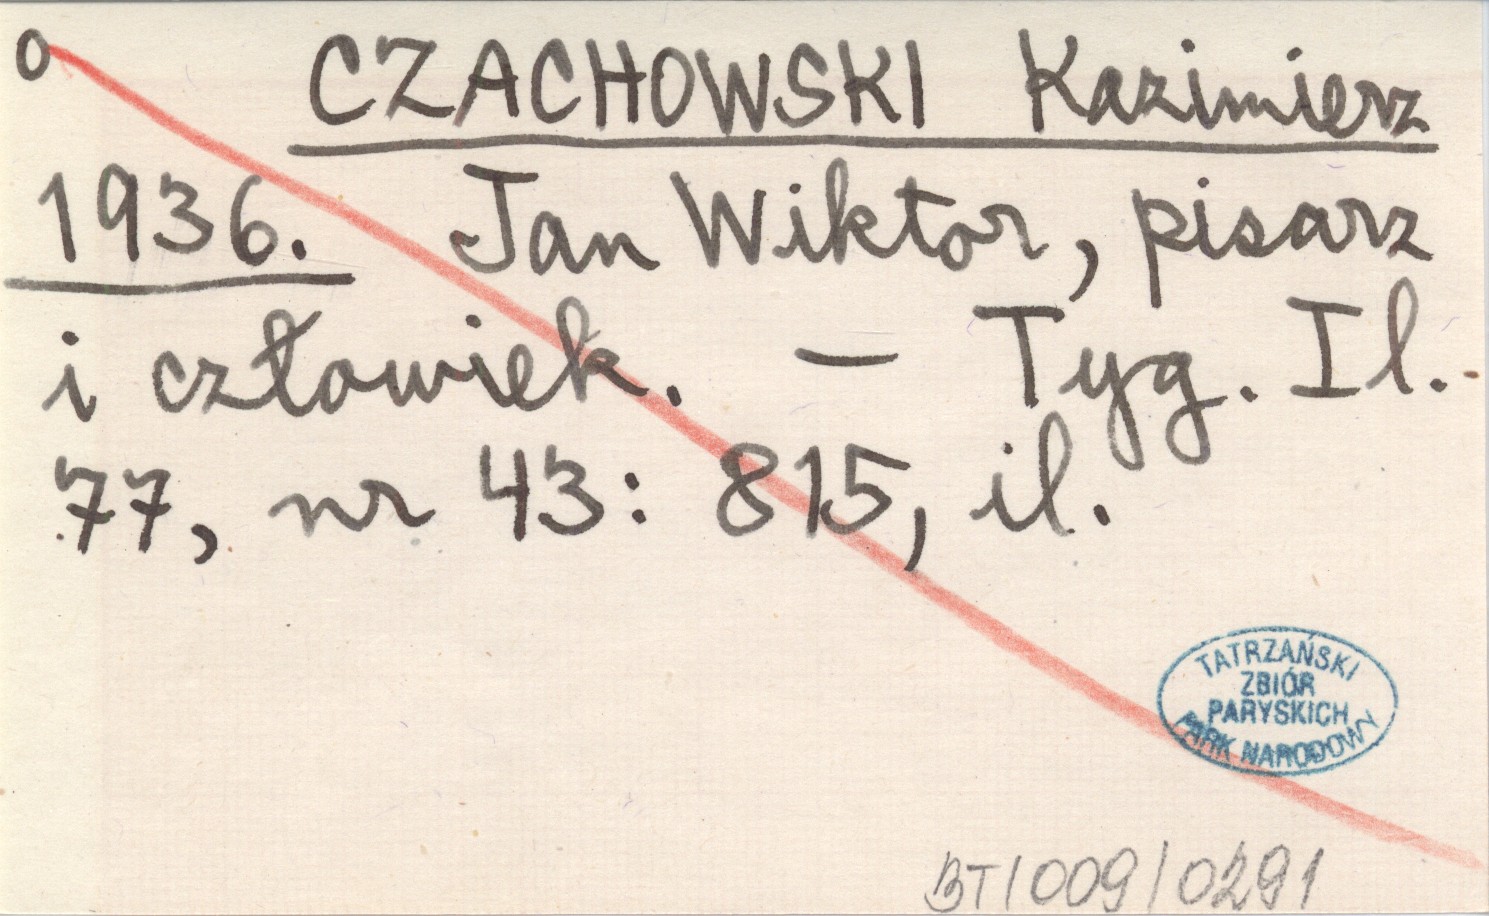 o CZACHOWSKI Kazimierz
1936. Jan Wiktor, pisarz
i człowiek. – Tyg. Il.
77, nr 43: 815, il.
TATRZAŃSKI
ZBIÓR
PARYSKICH
PARK NARODOWY
BT/009/0291